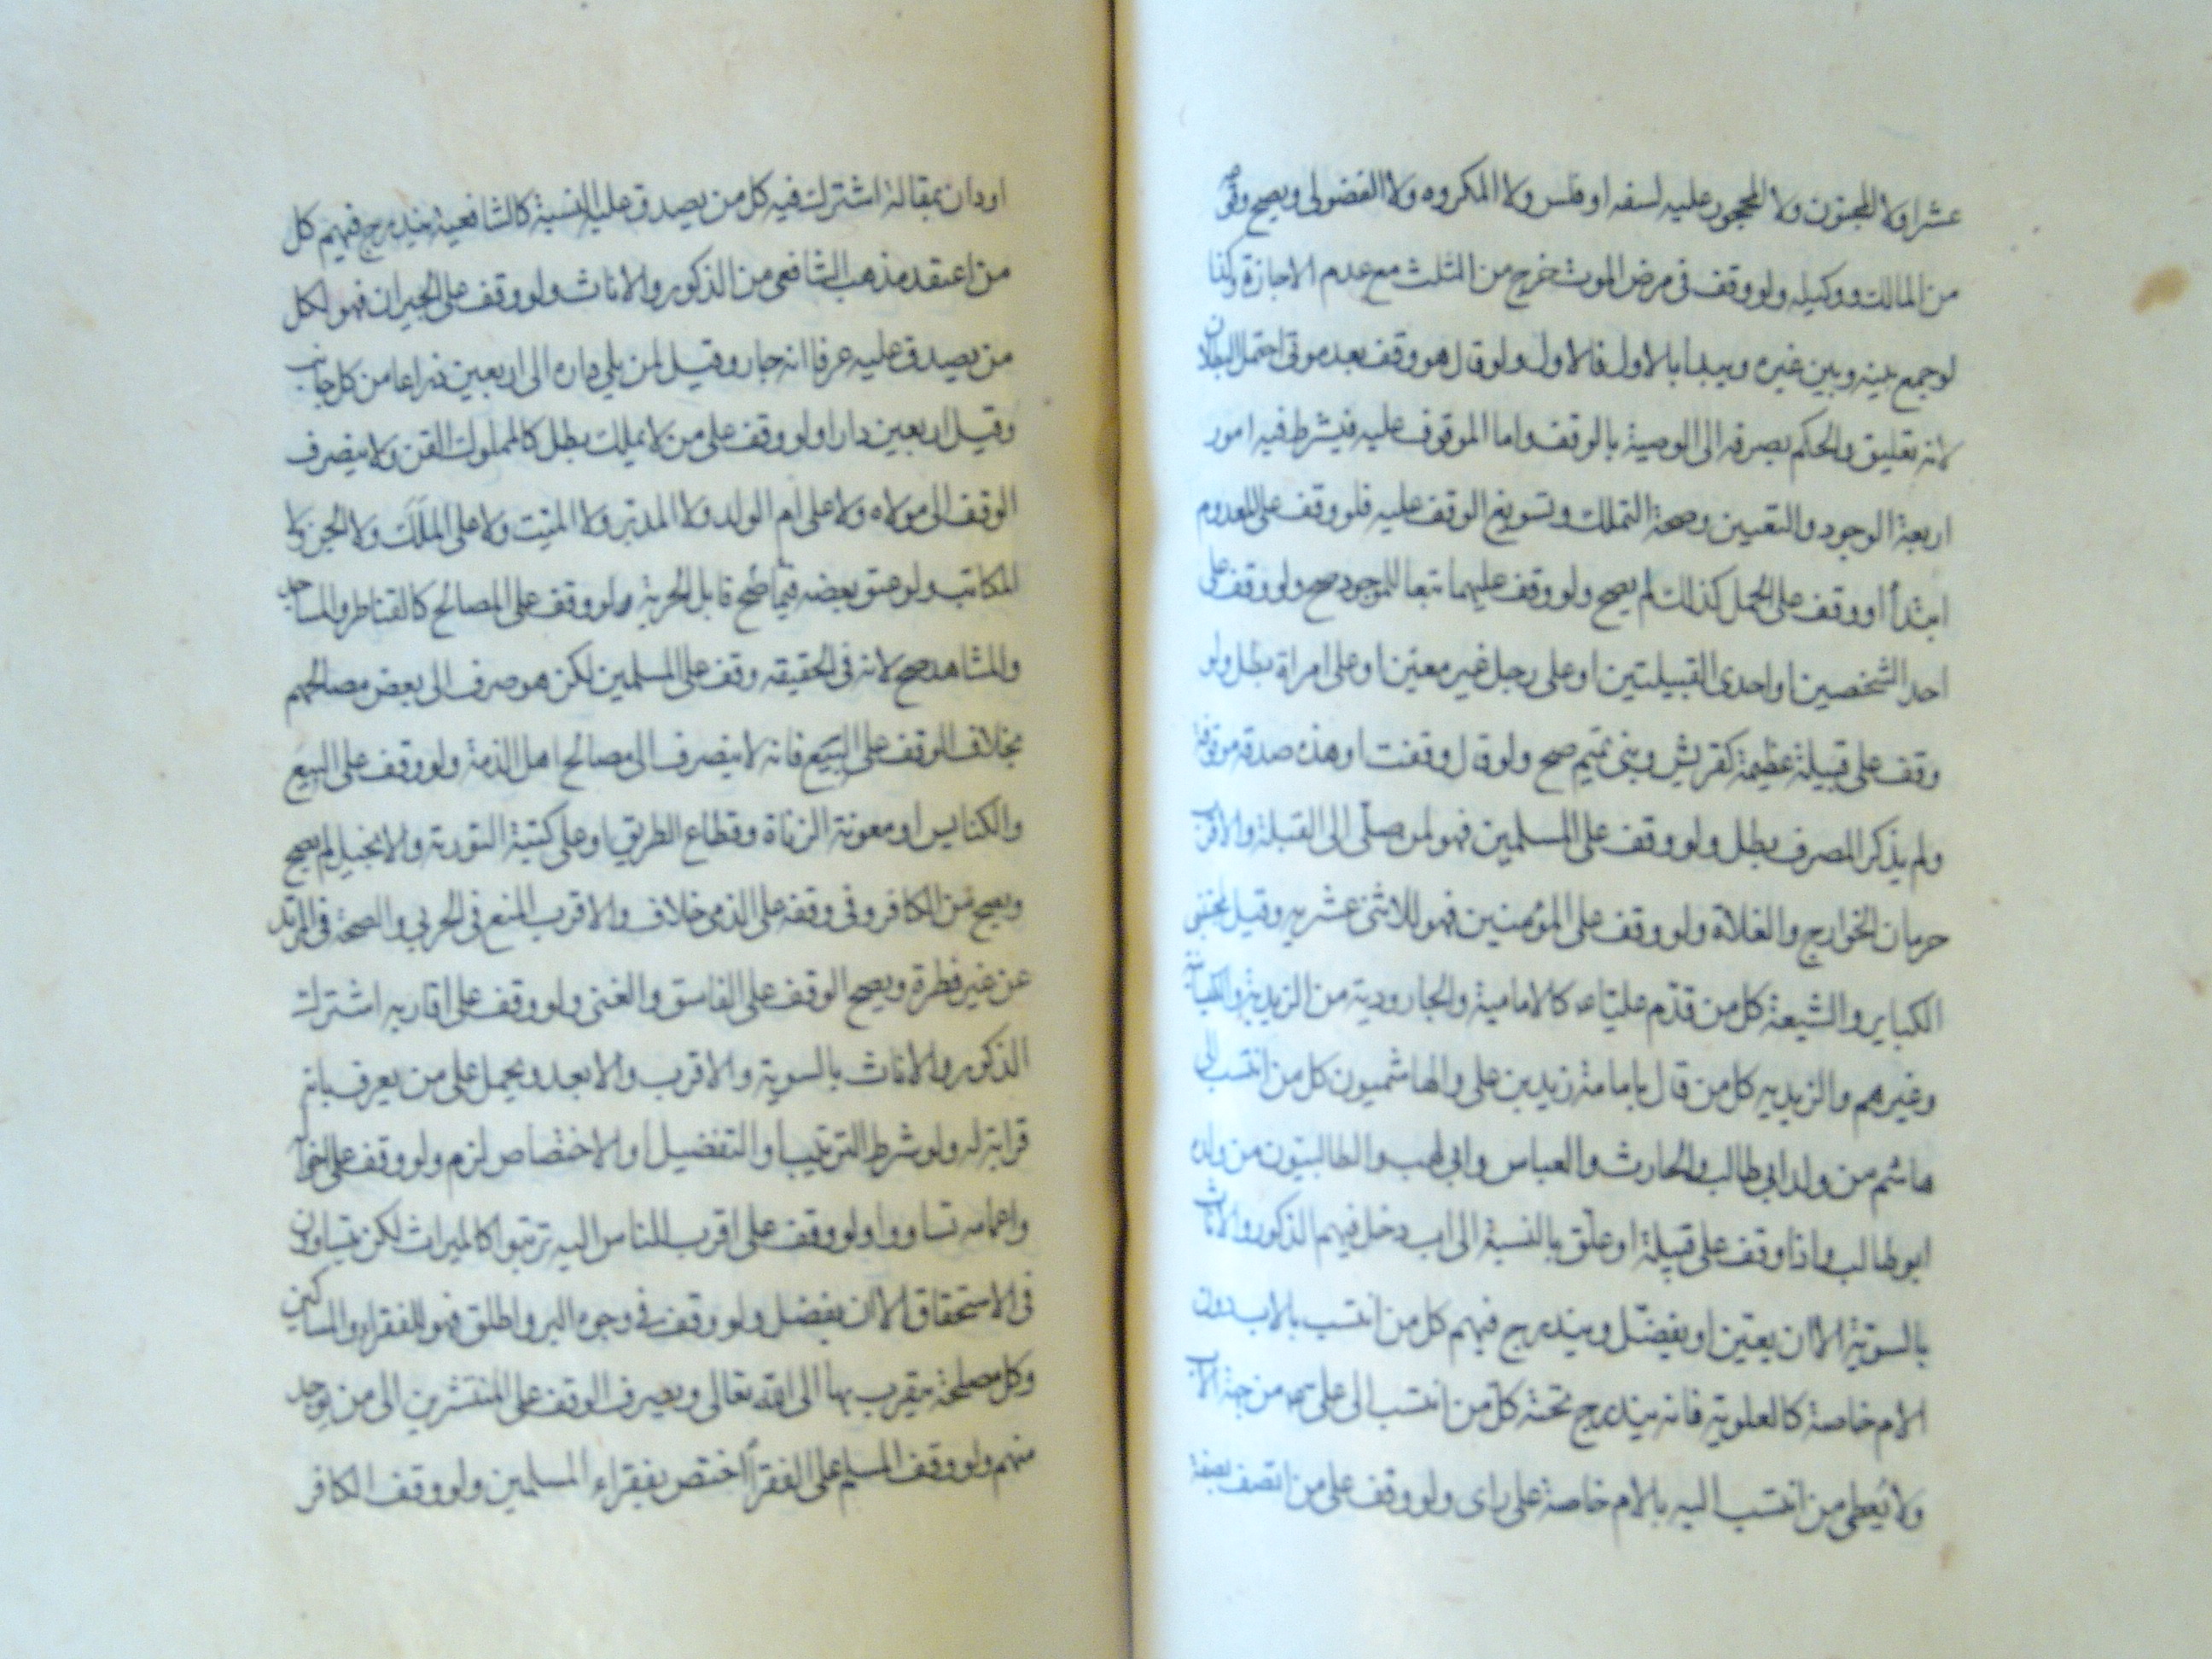 عشرا ولا المجنون ولا المحجور عليه لسفه او فلس ولا المكروه ولا الفضولى ويصح وقف
من المالك ووكيله ولو وقف فى مرض الموت خرج من الثلث مع عدم الاجازة وكذا
لو جمع بينه وبين غيره ويبدأ بالاول فالاول ولو قال هو وقف بعد موتى احتمل البطلان
لانه تعليق والحكم بصرفه الى الوصية بالوقف واما الموقوف عليه فيشرط فيه امور
اربعة الوجود والتعيين وصحة التملك وتسويغ الوقف عليه فلو وقف على المعدوم
ابتدأ او وقف على الحمل كذلك لم يصح ولو وقف عليهما تبعا للموجود صح ولو وقف على
احد الشخصين او احدى القبيلتين او على رجل غير معين او على امراة بطل ولو
وقف على قبيلة عظيمة كقريش وبنى تميم صح ولو قال وقفت او هذه صدقه موقوفة
ولم يذكر المصرف بطل ولو وقف على المسلمين فهو لمن صلى الى القبلة والاقرب
حرمان الخوارج والغلاة ولو وقف على المؤمنين فهو للاثنى عشريه وقيل لمجتنبى
الكباير والشيعة كل من قدم عليا ع كالامامية والجارودية من الزيدية والكيسانية
وغيرهم والزيديه كل من قال بامامة زيد بن على والهاشميون كل من انتسب الى
هاشم من ولد ابى طالب والحارث والعباس وابى لهب والطالبيون من ولده
ابو طالب واذا وقف على قبيلة او علق بالنسبة الى اب دخل فيهم الذكور والاناث
بالسوية الا ان يعين او يفضل ويندرج فيهم كل من انتسب بالاب دون
الام خاصة كالعلوية فانه يندرج تحته كل من انتسب الى على من جهة الاب
ولا يعطى من انتسب اليه بالام خاصة على راى ولو وقف على من اتصف بصفة
او دان بمقالة اشترك فيه كل من يصدق عليه النسبة كالشافعية يندرج فيهم كل
من اعتقد مذهب الشافعى من الذكور والاناث ولو وقف على الجيران فهو لكل
من يصدق عليه عرفا انه جار وقيل لمن يلى داره الى اربعين ذراعا من كل جانب
وقيل اربعين دارا ولو وقف على من لا يملك بطل كالمملوك القن ولا ينصرف
الوقف الى مولاه ولا على ام الولد ولا المدبر ولا الميت ولا على الملك ولا الجن ولا
المكاتب ولو عتق بعضه فيما صح قابل الحرية ولو وقف على المصالح كالقناطر والمساجد
والمشاهد صح لانه فى الحقيقه وقف على المسلمين لكن هو صرف الى بعض مصالحهم
بخلاف الوقف على البيع فانه لا ينصرف الى مصالح اهل الذمة ولو وقف على البيع
والكنايس او معونة الزناة وقطاع الطريق او على كتبة التورية والانجيل لم يصح
ويصح من الكافر وفى وقفه على الذمى خلاف والاقرب المنع فى الحربى والصحة فى المرتد
عن غير فطرة ويصح الوقف على الفاسق والغنى ولو وقف على اقاربه اشترك
الذكور والاناث بالسوية والاقرب والابعد ويحمل على من يعرف بانه
قرابة له ولو شرط الترتيب او التفضيل او الاختصاص لزم ولو وقف على اخواله
واعمامه تساووا ولو وقف على اقرب الناس اليه ترتبوا كالميراث لكن يتساوون
فى الاستحقاق الا ان يفضل ولو وقف فى وجوه البر واطلق فهو للفقراء والمساكين
وكل مصلحة يتقرب بها الى الله تعالى ويصرف الوقف على المنتشرين الى من يوجد
منهم ولو وقف المسلم على الفقرأ اختص بفقراء المسلمين ولو وقف الكافر